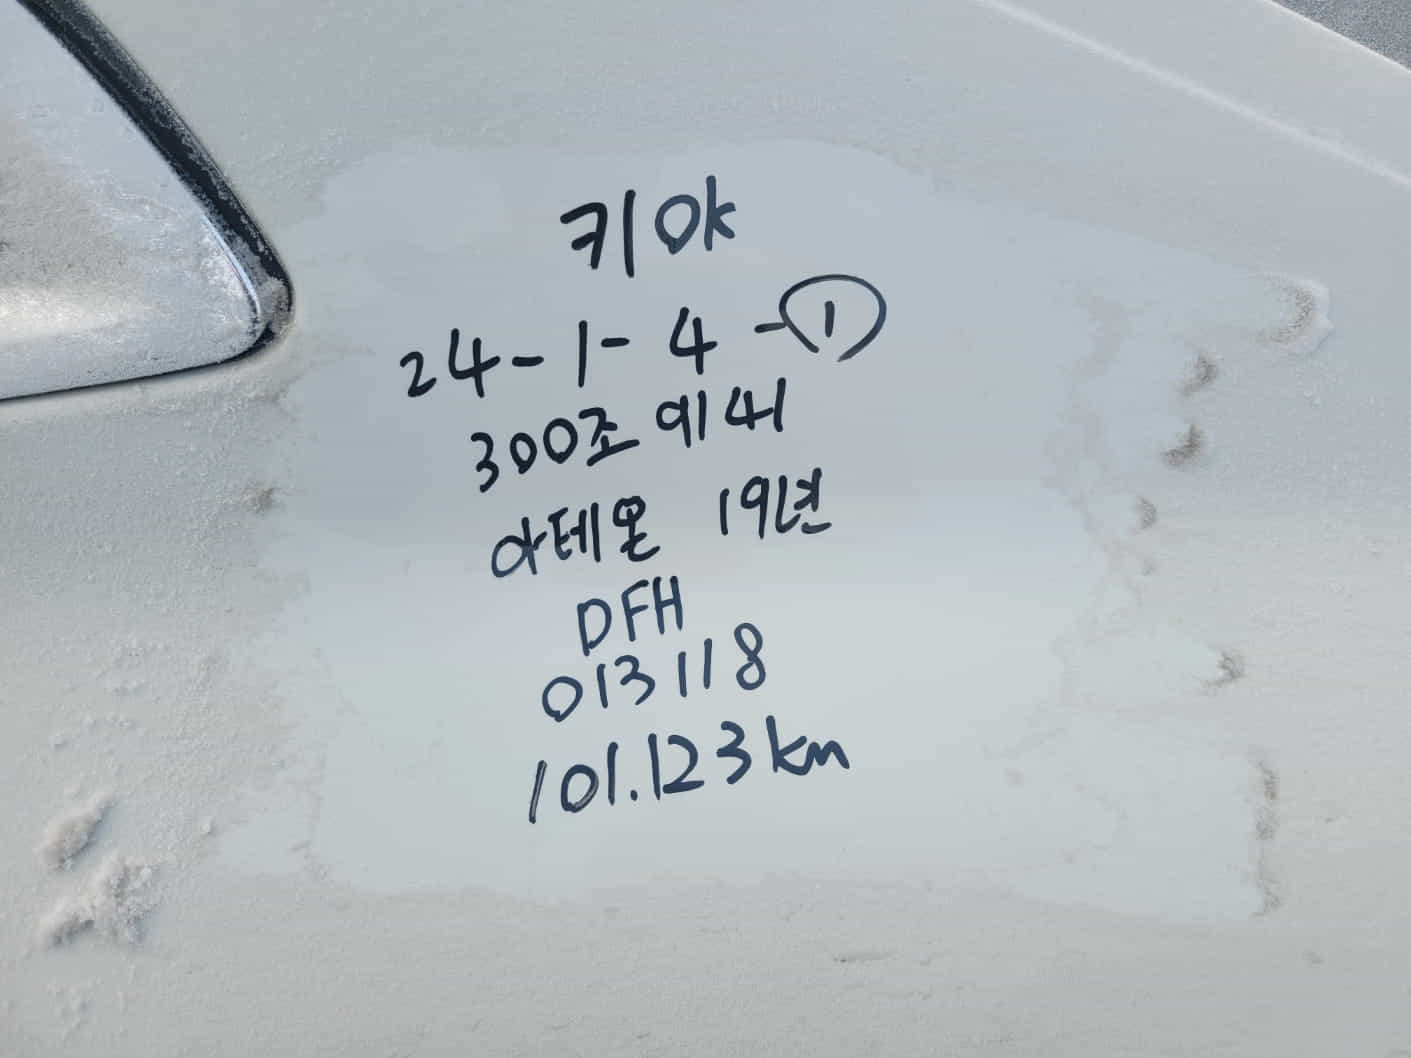 키 OK
24-1-4-①
300조 9141
아테온 19년
DFH
013118
101.123km